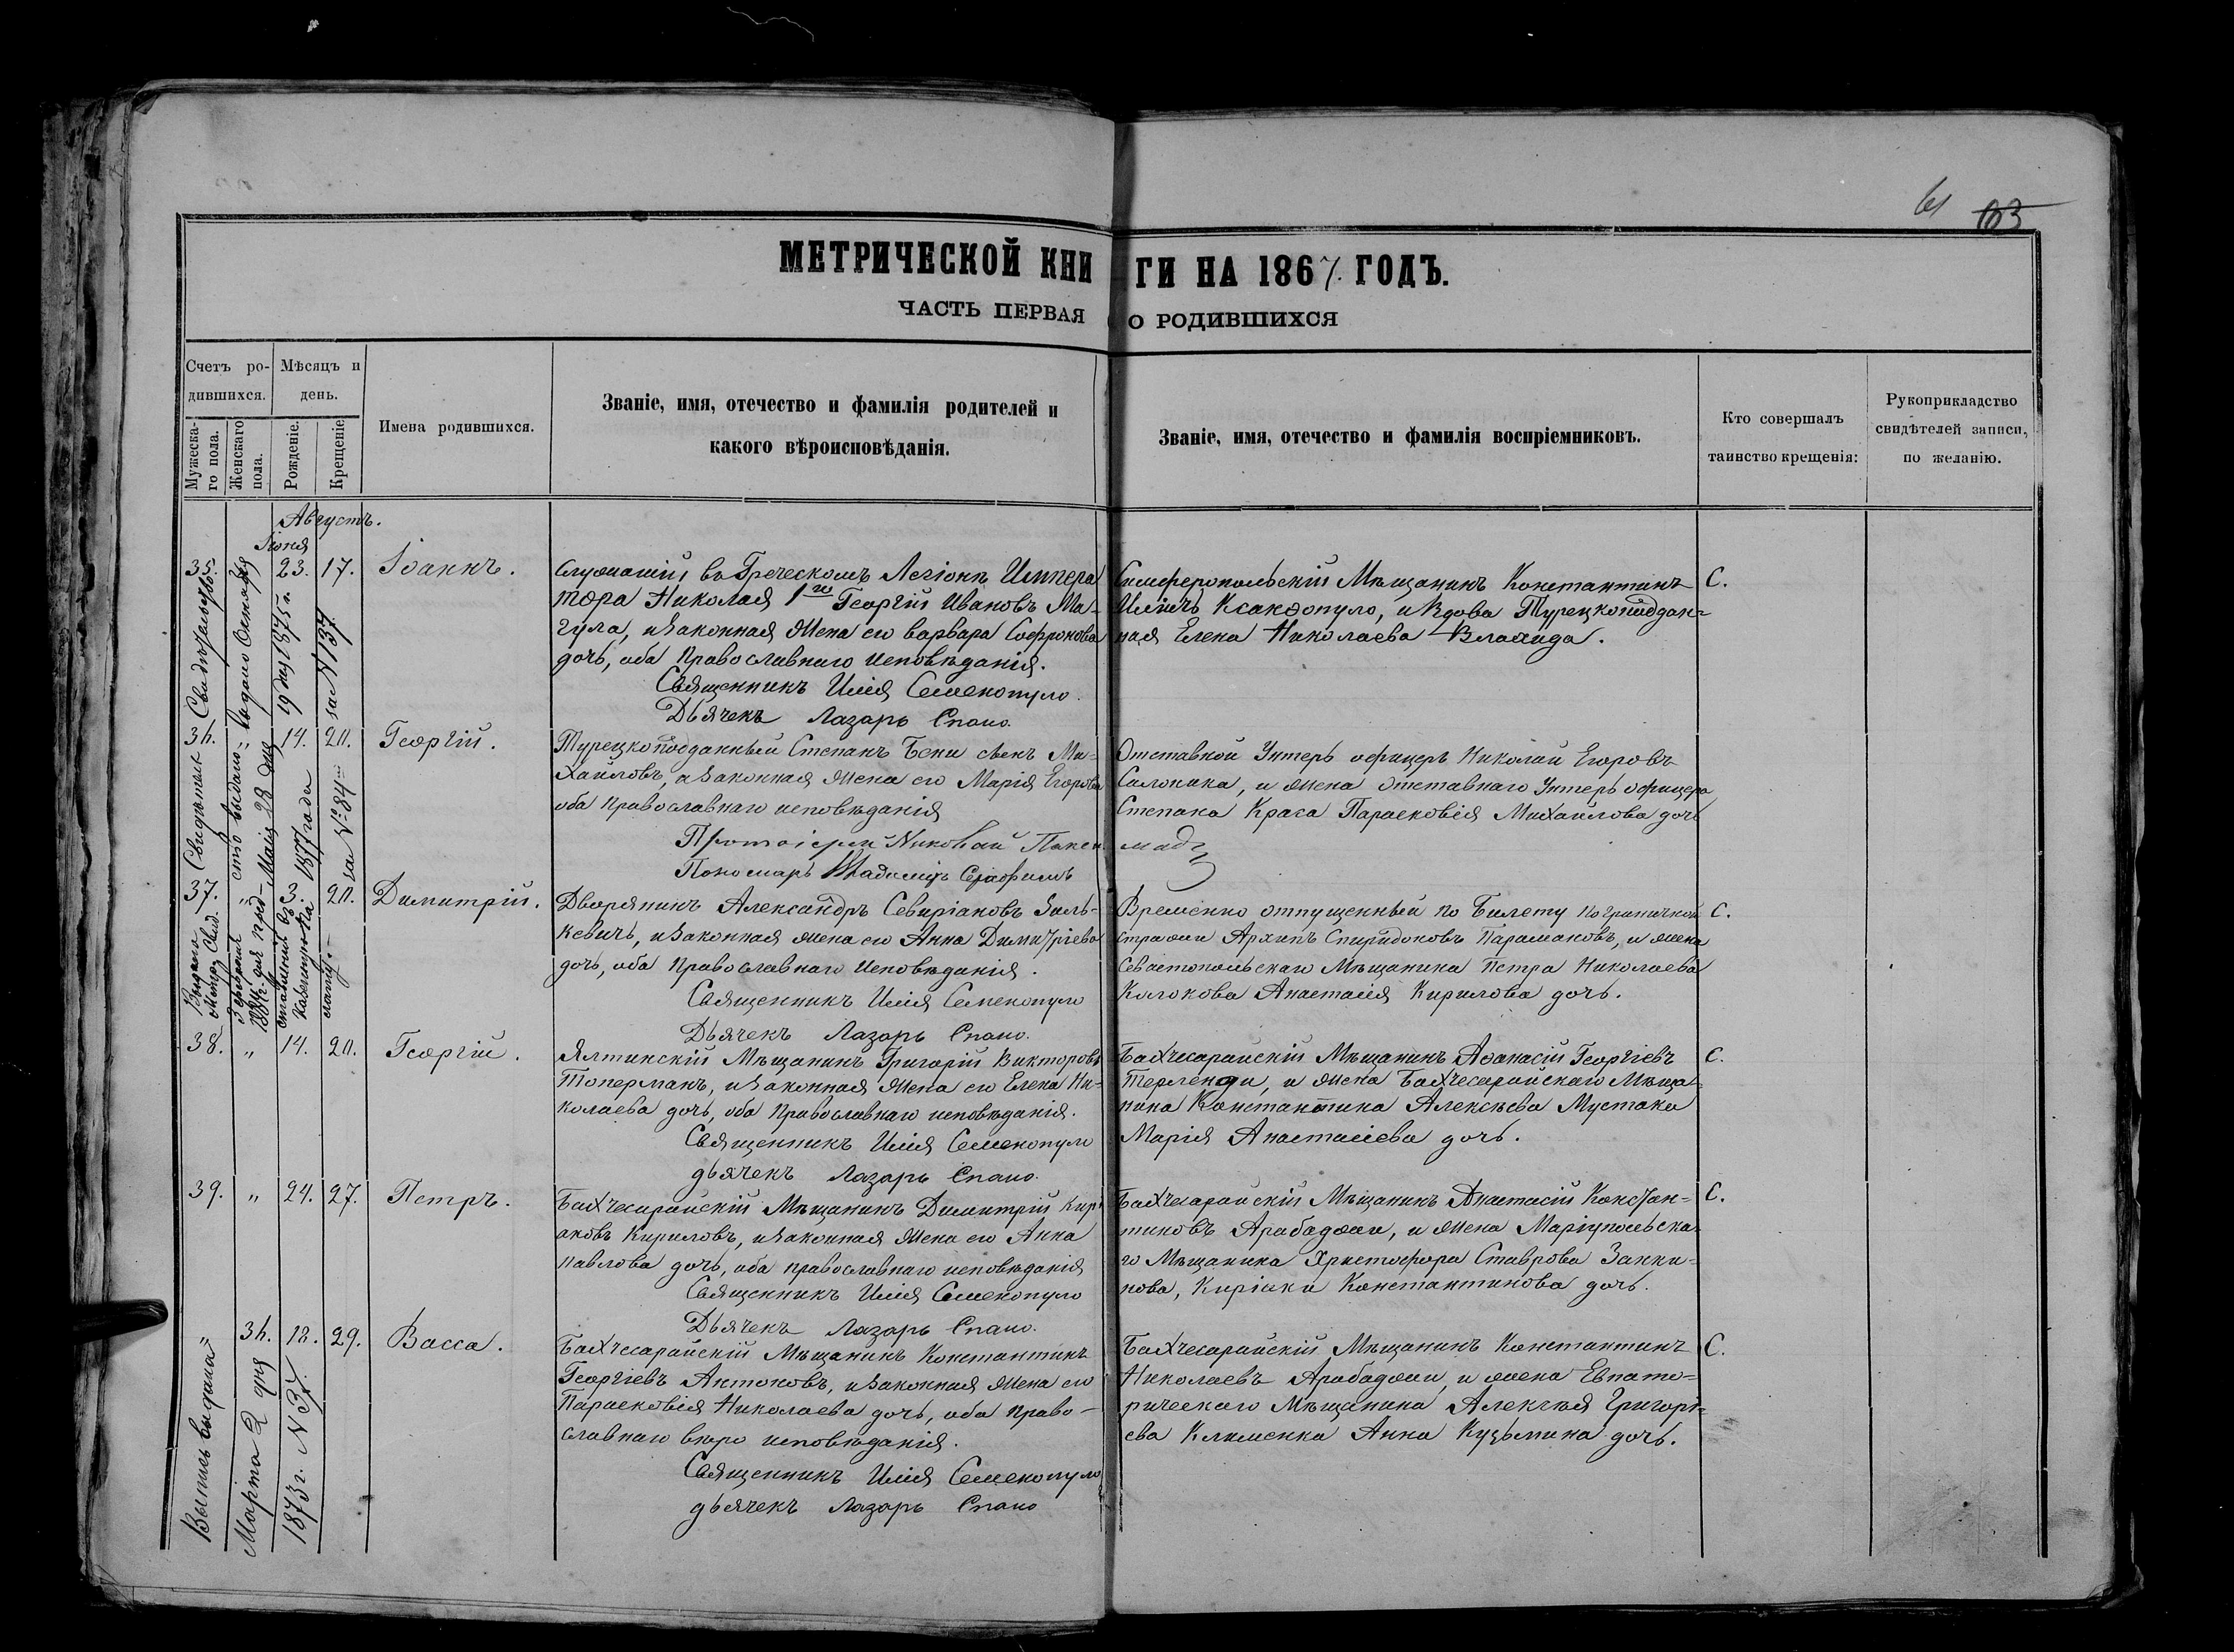 61 103
МЕТРИЧЕСКОЙ КНИГИ НА 1867 ГОДЪ.
ЧАСТЬ ПЕРВАЯ О РОДИВШИХСЯ
Счетъ ро-
дившихся.
Мужеска-
го пола.
Женскаго
пола.
Мѣсяцъ и
день.
Рожденіе.
Крещеніе.
Имена родившихся.
Званіе, имя, отечество и фамилія родителей и
какого вѣроисповѣданія.
Званіе, имя, отечество и фамилія воспріемниковъ.
Кто совершалъ
таинство крещенія:
Рукоприкладство
свидѣтелей записи,
по желанію.
Августъ.
Іюня
35. 23. 17. Іоаннъ.
Служащій въ Греческомъ Легіонѣ Импера
тора Николая 1го Георгій Ивановъ Ма-
гула, и законная жена его Варвара Софронова
дочь, оба Православнаго исповѣданія.
Священникъ Илія Семенопуло
Дьячекъ Лазарь Спано.
Симферопольскій Мѣщанинъ Константинъ
Иличъ Ксандопуло, и вдова Турецкоподдан-
ная Елена Николаева Влахида.
С.
Свидѣтельство
выдано
19 1875 г.
за N 137
36. 14. 20. Георгій.
Турецкоподданный Степанъ Бени сынъ Ми-
хайловъ, и законная жена его Марія Егорова
оба православнаго исповѣданія
Протоіерей Николай
Пономарь Серафимъ
Отставной Унтеръ офицеръ Николай Егоровъ
Салоника, и жена отставнаго Унтеръ офицера
Степана Краса Параскевія Михайлова дочь
Свидѣтель
ство выдано
Маія 28 дня
1877 года
за № 84
37. " 3. 20. Димитрій.
Дворянинъ Александръ Севиріановъ Зиль-
кевичъ, и законная жена его Анна Димитріева
дочь, оба Православнаго исповѣданія.
Священникъ Илія Семенопуло
Дьячекъ Лазарь Спано.
Временно отпущенный по Билету пограничной
стражи Архипъ Спиридоновъ Парамановъ, и жена
Севастопольскаго Мѣщанина Петра Николаева
Колокова Анастасія Кирилова дочь.
С.
Выдано
38. " 14. 20. Георгій.
Ялтинскій Мѣщанинъ Григорій Викторовъ
Топерманъ, и законная жена его Елена Ни-
колаева дочь, оба православнаго исповѣданія.
Священникъ Илія Семенопуло
дьячекъ Лазарь Спано.
Бахчесарайскій Мѣщанинъ Афанасій Георгіевъ
Терленджи, и жена Бахчесарайскаго Мѣща-
нина Константина Алексѣева Мустаки
Марія Анастасіева дочь.
С.
39. " 24. 27. Петръ.
Бахчесарайскій Мѣщанинъ Димитрій Кирі
аковъ Кириловъ, и законная жена его Анна
Павлова дочь, оба православнаго исповѣданія
Священникъ Илія Семенопуло
Дьячекъ Лазарь Спано.
Бахчесарайскій Мѣщанинъ Анастасій Констан-
тиновъ Арабаджи, и жена Маріупольска-
го Мѣщанина Христофора Ставрова Занки-
нова, Киріаки Константинова дочь.
С.
" 36. 18. 29. Васса.
Бахчесарайскій Мѣщанинъ Константинъ
Георгіевъ Антоновъ, и законная жена его
Параскевія Николаева дочь, оба право-
славнаго исповѣданія.
Священникъ Илія Семенопуло
дьячекъ Лазарь Спано
Бахчесарайскій Мѣщанинъ Константинъ
Николаевъ Арабаджи, и жена Евпато-
рическаго Мѣщанина Алексѣя Григорі-
ева Клименка Анна Кузьмина дочь.
С.
Выпись выдана
Марта 2 дня
1873 г. N 37.